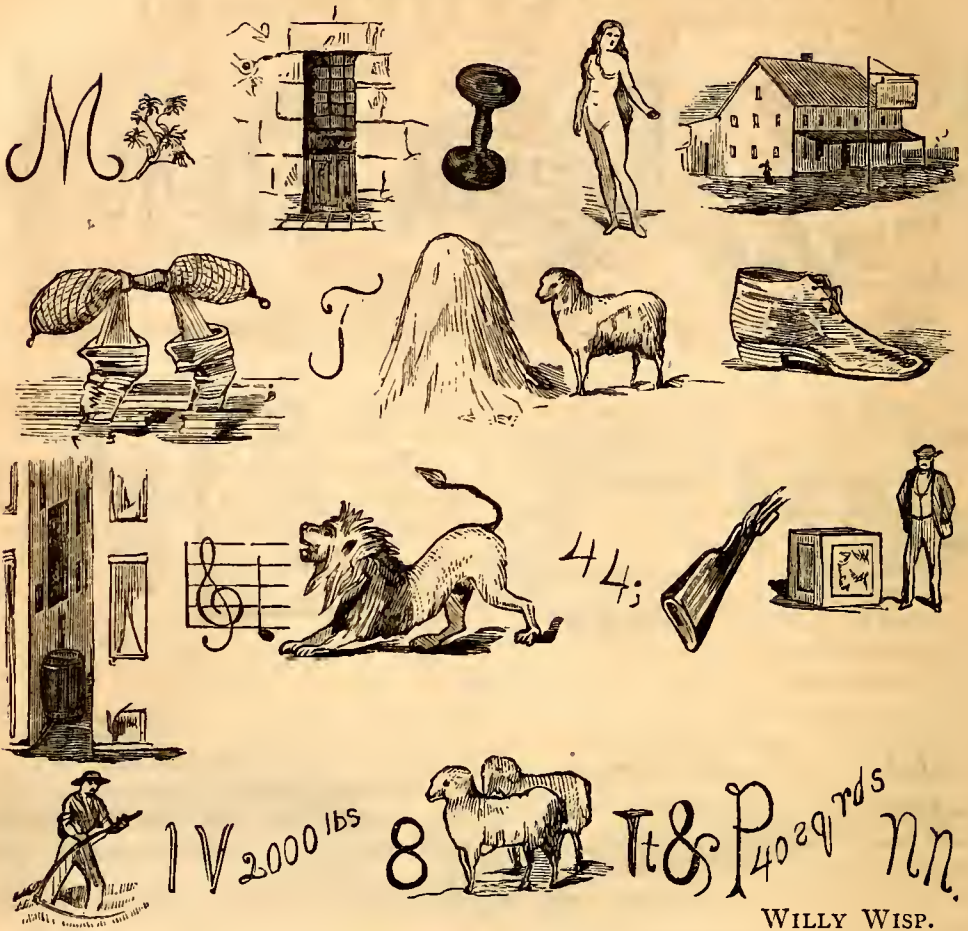 M
J
44;
1 V 2000 lbs 8 Tt & P 40 sqrds nn.
WILLY WISP.